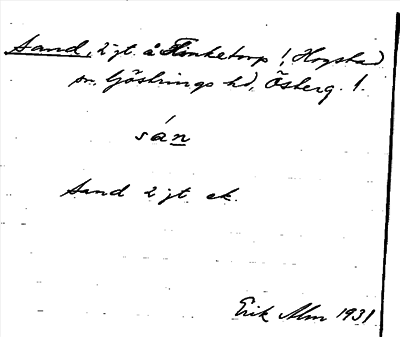 Sand, 2 jt. å Flinketorp !, Hogstad
sn, Göstrings hd, Österg. l.
sán
Sand 2 jt ek.
Erik Alm 1931